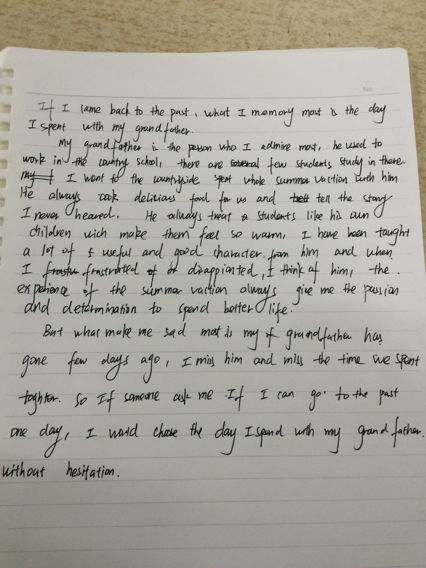 If I came back to the past, what I memory most is the day
I spent with my grandfather.
My grandfather is the person who I admire most, he used to
work in the country school, there are few students study in there.
I went to the countryside spent whole summer vaction with him
He always cook delicious food for us and tell the story
I never heared. He always treat students like his own
children wich make them feel so warm, I have been taught
a lot of useful and good character from him and when
I frastrated or disappionted, I think of him, the
experience of the summer vaction always give me the passion
and determination to spend better life.
But what make me sad most is my grandfather has
gone few days ago, I miss him and miss the time we spent
toghter. So If someone ask me If I can go to the past
one day, I would chose the day I spend with my grand father.
without hesitation.